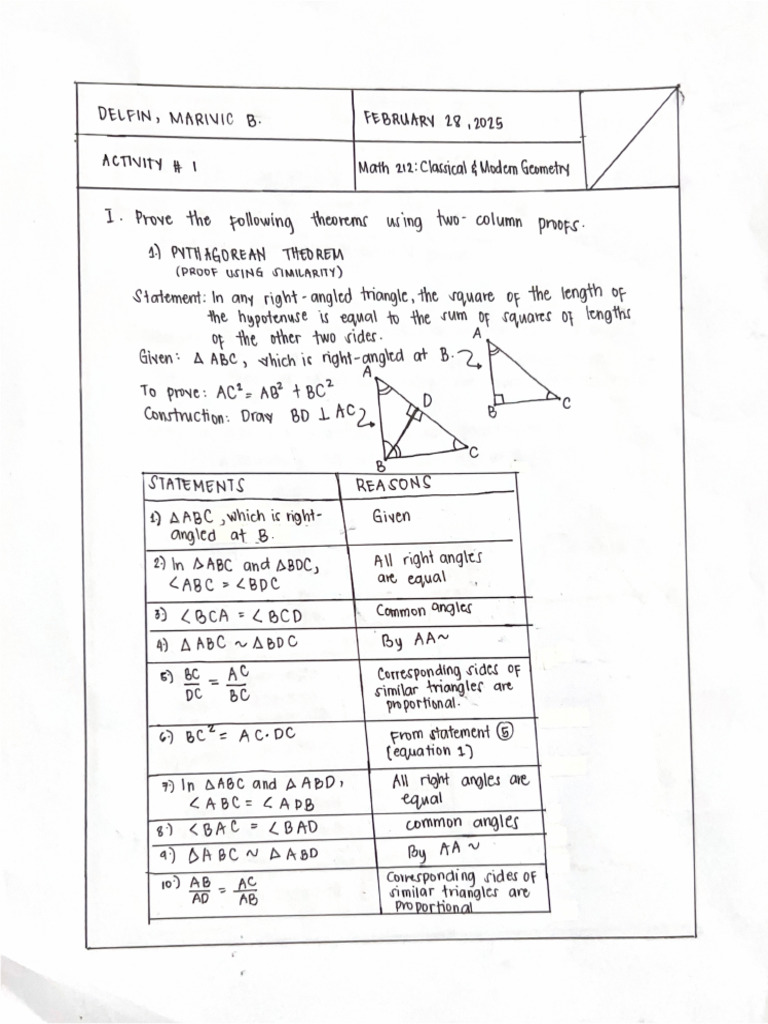 DELFIN, MARIVIC B.
FEBRUARY 28, 2025
ACTIVITY # 1
Math 212: Classical & Modern Geometry
I. Prove the following theorems using two-column proofs.
1.) PYTHAGOREAN THEOREM
(PROOF USING SIMILARITY)
Statement: In any right-angled triangle, the square of the length of
the hypotenuse is equal to the sum of squares of lengths
of the other two sides.
Given: Δ ABC, which is right-angled at B.
A
B
C
To prove: AC² = AB² + BC²
Construction: Draw BD ⊥ AC
A
D
B
C
STATEMENTS
REASONS
1) ΔABC, which is right-
angled at B.
Given
2.) In ΔABC and ΔBDC,
∠ABC = ∠BDC
All right angles
are equal
3.) ∠BCA = ∠BCD
Common angles
4.) Δ ABC ~ Δ BDC
By AA~
5.) BC/DC = AC/BC
Corresponding sides of
similar triangles are
proportional.
6.) BC² = AC·DC
From statement ⑤
(equation 1)
7.) In ΔABC and Δ ABD,
∠ABC = ∠ADB
All right angles are
equal
8.) ∠BAC = ∠BAD
common angles
9.) ΔABC ~ Δ ABD
By AA ~
10.) AB/AD = AC/AB
Corresponding sides of
similar triangles are
proportional